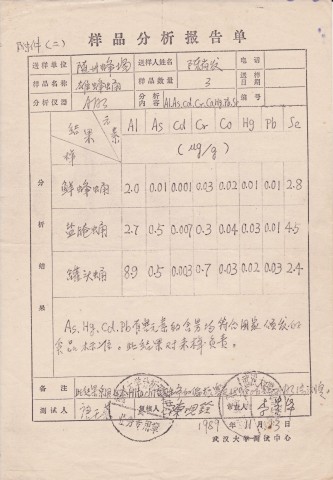 附件(二)
样品分析报告单
送样单位 随州蜂场 送样人姓名 电话
样品名称 雄蜂蛹 样品数量 3 送样日期
分析仪器 分析内容 Al.As.Cd.Cr.Co.Hg.Pb.Se 编号
分析结果
结果 元素 样 Al As Cd Cr Co Hg Pb Se
(μg/g)
鲜蜂蛹 2.0 0.01 0.001 0.03 0.02 0.01 0.01 2.8
盐脆蛹 2.7 0.5 0.007 0.3 0.04 0.03 0.01 4.5
罐头蛹 8.9 0.5 0.003 0.7 0.03 0.02 0.03 2.4
As、Hg、Cd、Pb有害元素的含量均符合国家颁发的
食品标准。此结果对来样负责。
备注 此结果
测试人 复核人 审批人
1989年11月13日
武汉大学测试中心